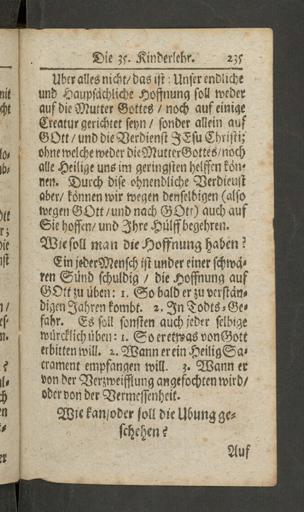 Die 35. Kinderlehr. 235
Uber alles nicht/ das ist: Unser endliche
und Haupsächliche Hoffnung soll weder
auf die Mutter Gottes / noch auf einige
Creatur gerichtet seyn / sonder allein auf
GOtt / und die Verdienst JEsu Christi;
ohne welche weder die Mutter Gottes/ noch
alle Heilige uns im geringsten helffen kön-
nen. Durch dise ohnendliche Verdienst
aber/ können wir wegen denselbigen (also
wegen GOtt/ und nach GOtt) auch auf
Sie hoffen/ und Ihre Hülff begehren.
Wie soll man die Hoffnung haben?
Ein jeder Mensch ist under einer schwä-
ren Sünd schuldig / die Hoffnung auf
GOtt zu üben: 1. So bald er zu verstän-
digen Jahren kombt. 2. In Todts-Ge-
fahr. Es soll sonsten auch jeder selbige
würcklich üben: 1. So er etwas von Gott
erbitten will. 2. Wann er ein Heilig Sa-
crament empfangen will. 3. Wann er
von der Verzweifflung angefochten wird/
oder von der Vermessenheit.
Wie kan/ oder soll die Ubung ge-
schehen?
Auf